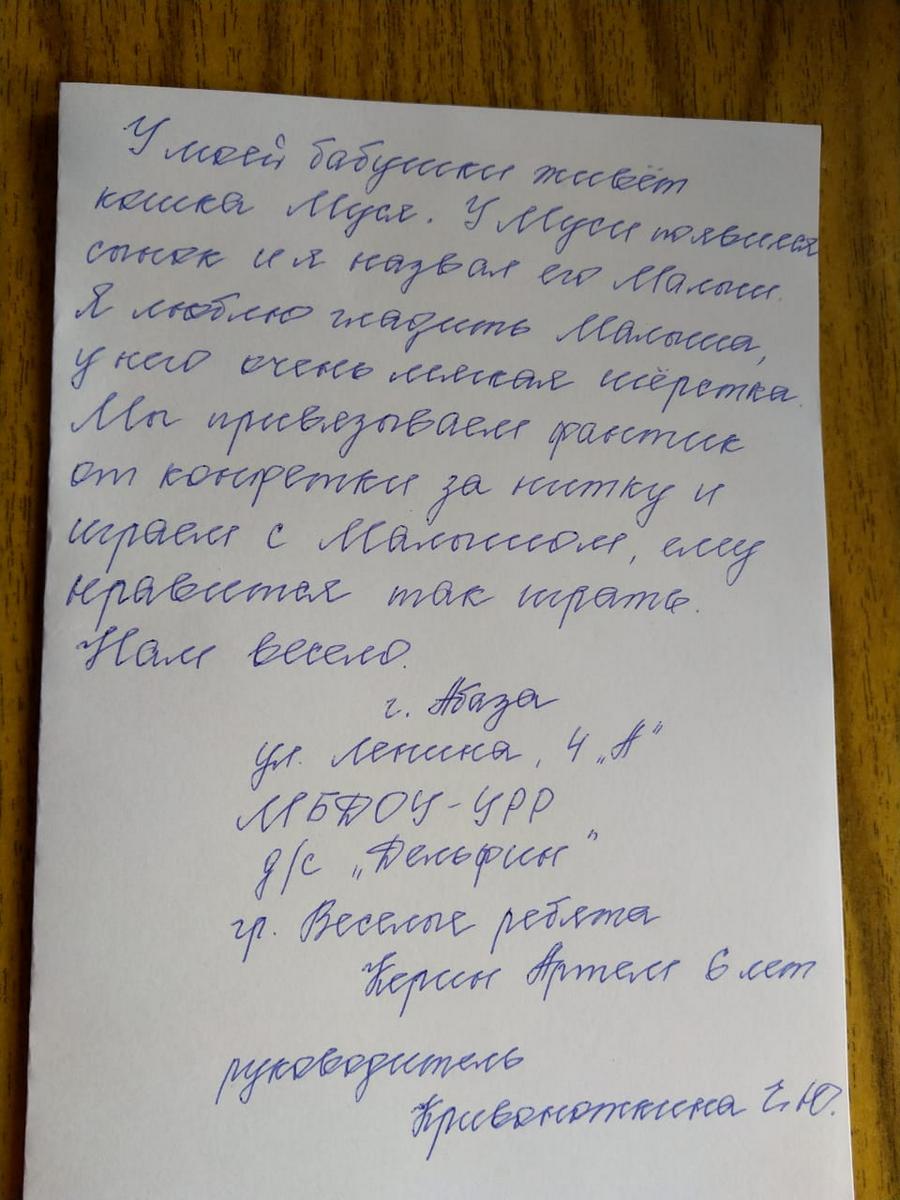 У моей бабушки живёт
кошка Муся. У Муси появился
сынок и я назвал его Малыш.
Я люблю гладить Малыша,
у него очень мягкая шёрстка.
Мы привязываем фантик
от конфетки за нитку и
играем с Малышом, ему
нравится так играть.
Нам весело.
г. Абаза
ул. Ленина, 4 „А"
МБДОУ-ЦРР
д/с „Дельфин"
гр. Веселые ребята
Керин Артем 6 лет
руководитель
Кривоножкина Е.Ю.